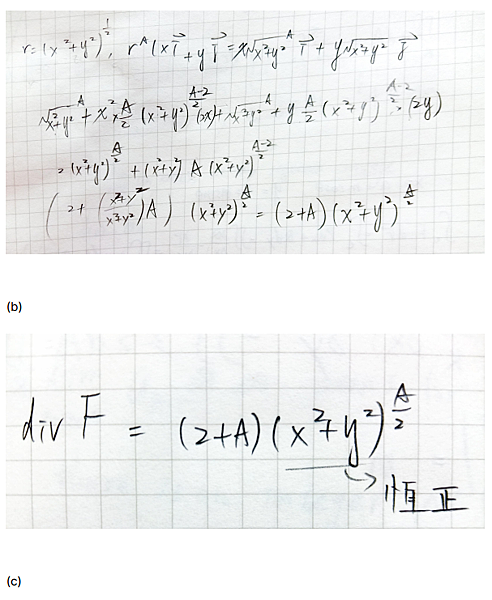 r = (x²+y²)^{1/2}, r^A (x i⃗ + y j⃗ = x√(x²+y²)^A i⃗ + y√(x²+y²)^A j⃗
√(x²+y²)^A + x² × A/2 (x²+y²)^{(A-2)/2} (2x) + √(x²+y²)^A + y A/2 (x²+y²)^{(A-2)/2} · (2y)
= (x²+y²)^{A/2} + (x²+y²) A (x²+y²)^{(A-2)/2}
(2 + ((x²+y²)/(x²+y²)) A) (x²+y²)^{A/2} = (2+A)(x²+y²)^{A/2}
(b)
div F = (2+A)(x²+y²)^{A/2}
恒正
(c)